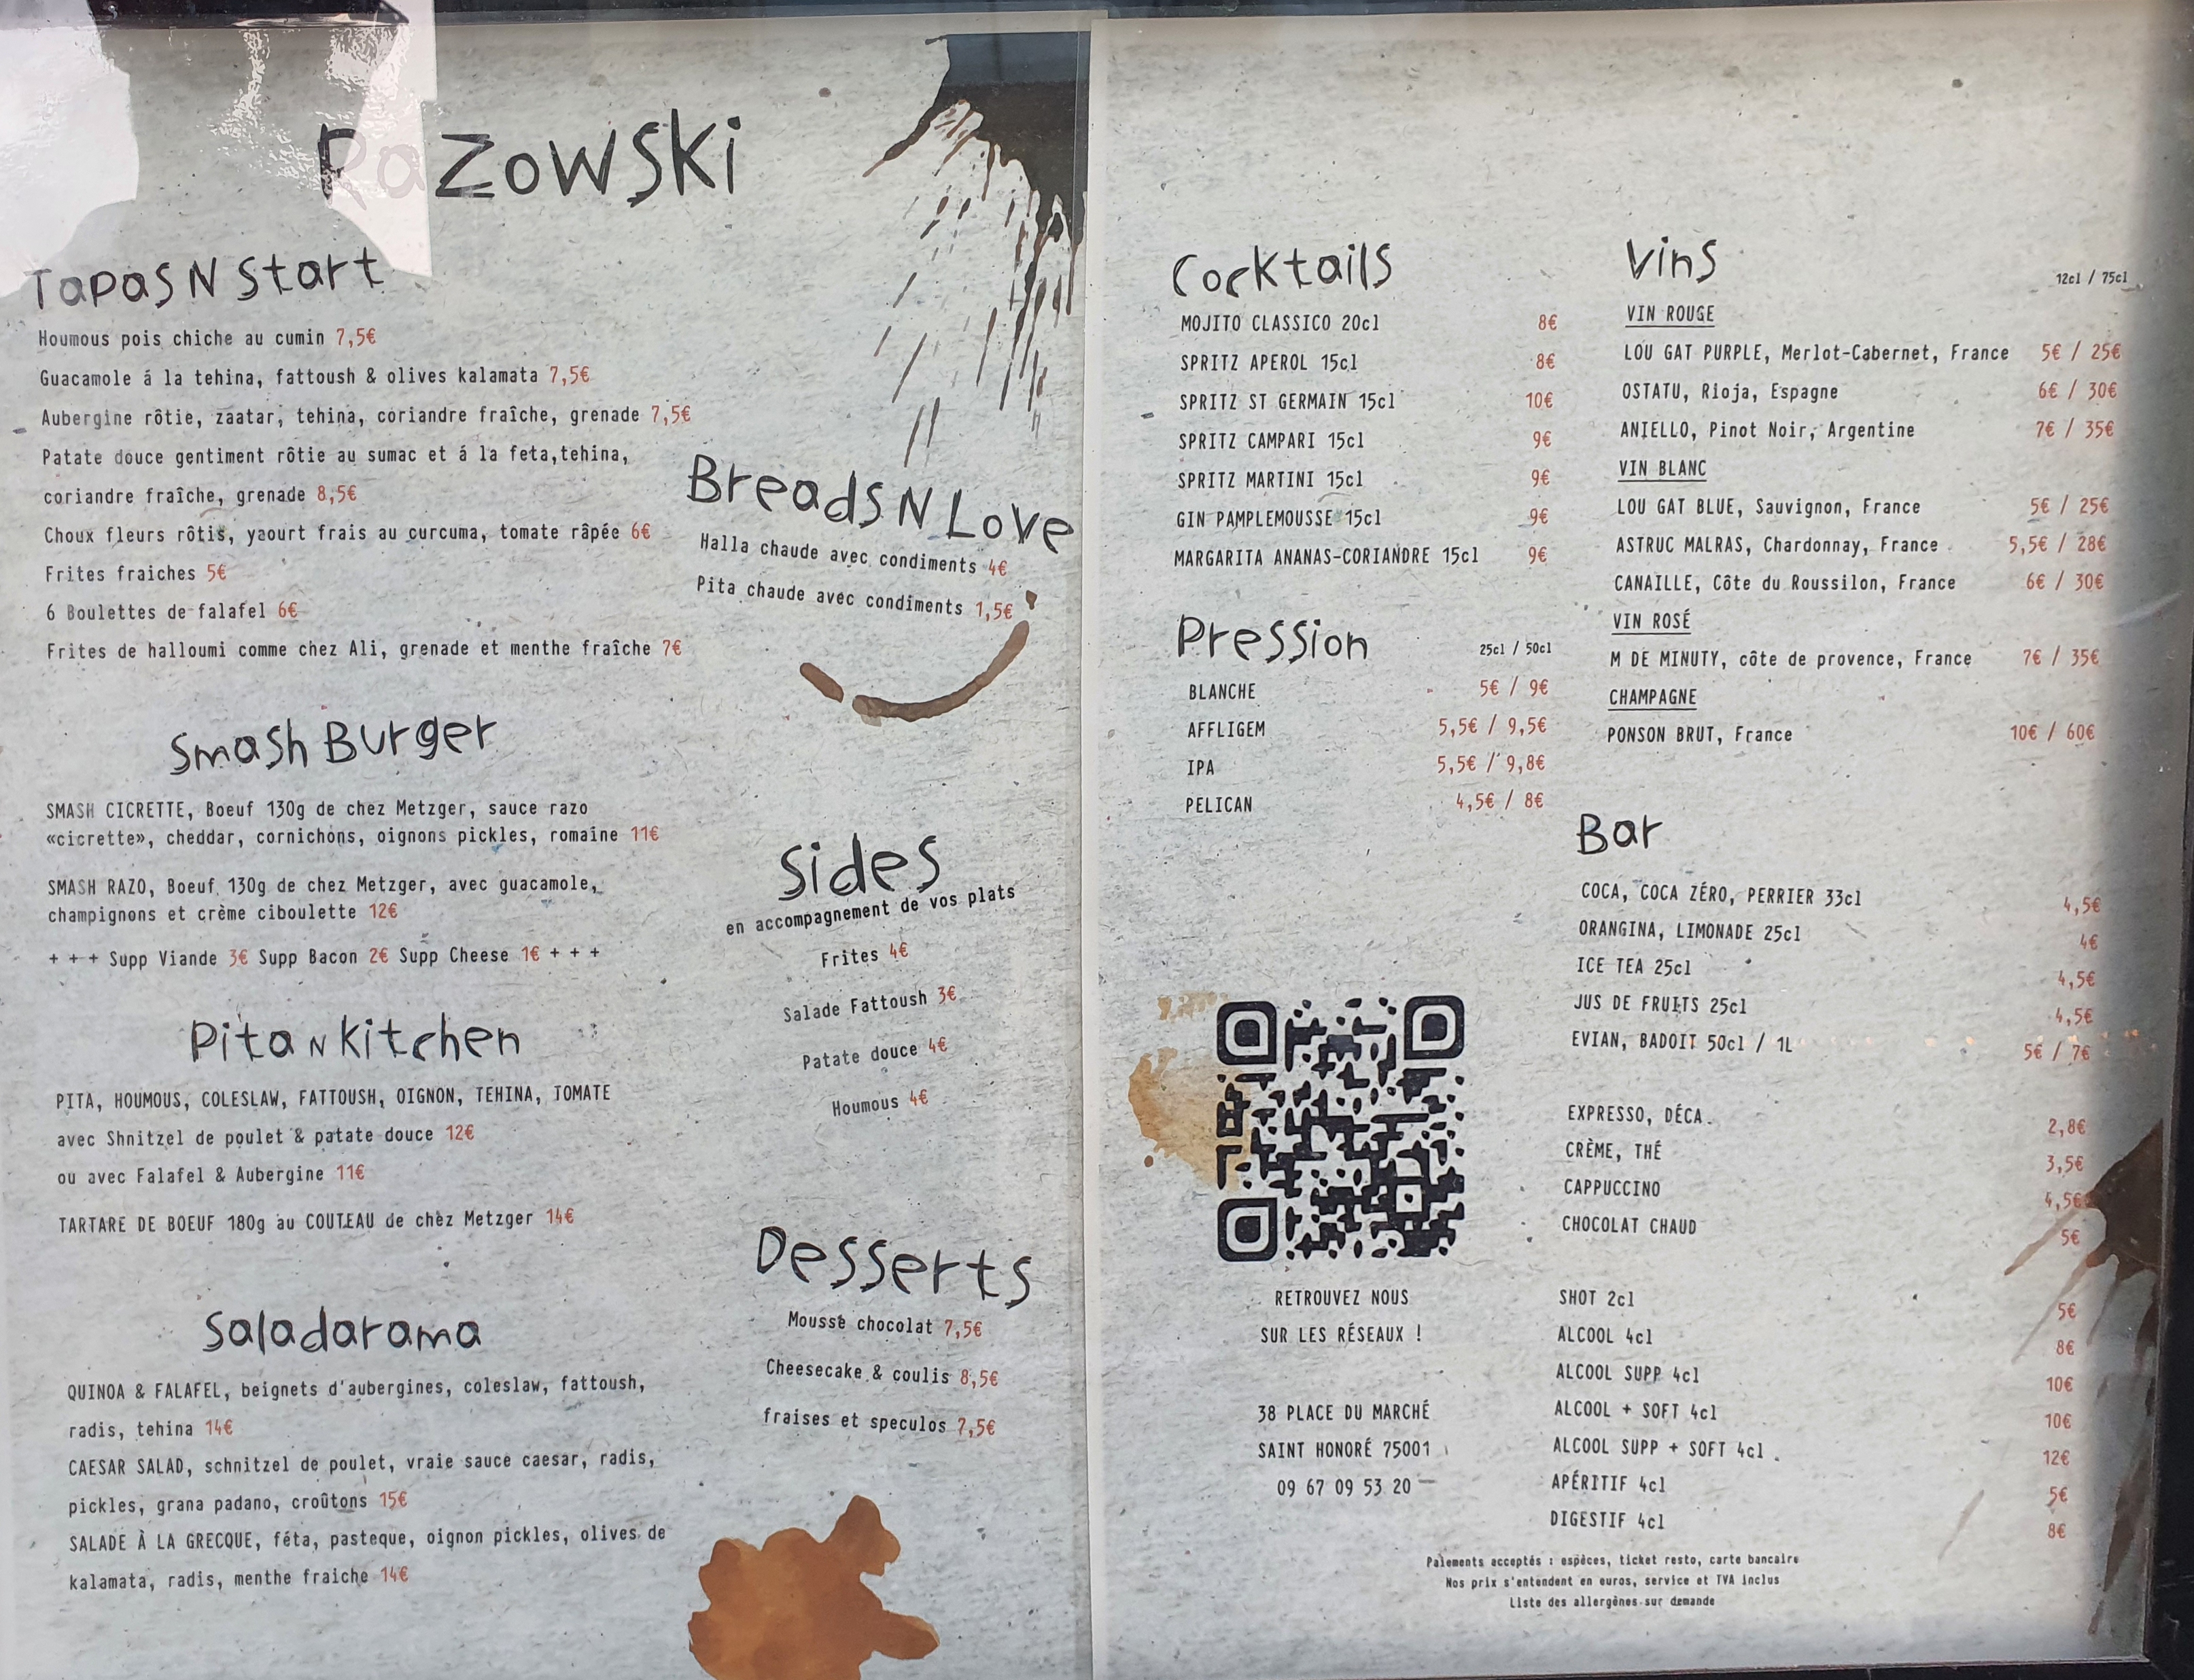 Razowski
Tapas N Start
Houmous pois chiche au cumin 7,5€
Guacamole á la tehina, fattoush & olives kalamata 7,5€
Aubergine rôtie, zaatar, tehina, coriandre fraîche, grenade 7,5€
Patate douce gentiment rôtie au sumac et á la feta,tehina,
coriandre fraîche, grenade 8,5€
Choux fleurs rôtis, yaourt frais au curcuma, tomate râpée 6€
Frites fraiches 5€
6 Boulettes de falafel 6€
Frites de halloumi comme chez Ali, grenade et menthe fraîche 7€
Breads N Love
Halla chaude avec condiments 4€
Pita chaude avec condiments 1,5€
Smash Burger
SMASH CICRETTE, Boeuf 130g de chez Metzger, sauce razo
«cicrette», cheddar, cornichons, oignons pickles, romaine 11€
SMASH RAZO, Boeuf 130g de chez Metzger, avec guacamole,
champignons et crème ciboulette 12€
+ + + Supp Viande 3€ Supp Bacon 2€ Supp Cheese 1€ + + +
Pita N Kitchen
PITA, HOUMOUS, COLESLAW, FATTOUSH, OIGNON, TEHINA, TOMATE
avec Shnitzel de poulet & patate douce 12€
ou avec Falafel & Aubergine 11€
TARTARE DE BOEUF 180g au COUTEAU de chez Metzger 14€
Saladarama
QUINOA & FALAFEL, beignets d'aubergines, coleslaw, fattoush,
radis, tehina 14€
CAESAR SALAD, schnitzel de poulet, vraie sauce caesar, radis,
pickles, grana padano, croûtons 15€
SALADE À LA GRECQUE, féta, pasteque, oignon pickles, olives de
kalamata, radis, menthe fraiche 14€
Sides
en accompagnement de vos plats
Frites 4€
Salade Fattoush 3€
Patate douce 4€
Houmous 4€
Desserts
Mousse chocolat 7,5€
Cheesecake & coulis 8,5€
fraises et speculos 7,5€
Cocktails
MOJITO CLASSICO 20cl 8€
SPRITZ APEROL 15cl 8€
SPRITZ ST GERMAIN 15cl 10€
SPRITZ CAMPARI 15cl 9€
SPRITZ MARTINI 15cl 9€
GIN PAMPLEMOUSSE 15cl 9€
MARGARITA ANANAS-CORIANDRE 15cl 9€
Pression 25cl / 50cl
BLANCHE 5€ / 9€
AFFLIGEM 5,5€ / 9,5€
IPA 5,5€ / 9,8€
PELICAN 4,5€ / 8€
RETROUVEZ NOUS
SUR LES RÉSEAUX !
38 PLACE DU MARCHÉ
SAINT HONORÉ 75001
09 67 09 53 20
Vins 12cl / 75cl
VIN ROUGE
LOU GAT PURPLE, Merlot-Cabernet, France 5€ / 25€
OSTATU, Rioja, Espagne 6€ / 30€
ANIELLO, Pinot Noir, Argentine 7€ / 35€
VIN BLANC
LOU GAT BLUE, Sauvignon, France 5€ / 25€
ASTRUC MALRAS, Chardonnay, France 5,5€ / 28€
CANAILLE, Côte du Roussilon, France 6€ / 30€
VIN ROSÉ
M DE MINUTY, côte de provence, France 7€ / 35€
CHAMPAGNE
PONSON BRUT, France 10€ / 60€
Bar
COCA, COCA ZÉRO, PERRIER 33cl 4,5€
ORANGINA, LIMONADE 25cl 4€
ICE TEA 25cl 4,5€
JUS DE FRUITS 25cl 4,5€
EVIAN, BADOIT 50cl / 1L 5€ / 7€
EXPRESSO, DÉCA 2,8€
CRÈME, THÉ 3,5€
CAPPUCCINO 4,5€
CHOCOLAT CHAUD 5€
SHOT 2cl 5€
ALCOOL 4cl 8€
ALCOOL SUPP 4cl 10€
ALCOOL + SOFT 4cl 10€
ALCOOL SUPP + SOFT 4cl 12€
APÉRITIF 4cl 5€
DIGESTIF 4cl 8€
Paiements acceptés : espèces, ticket resto, carte bancaire
Nos prix s'entendent en euros, service et TVA inclus
Liste des allergènes sur demande